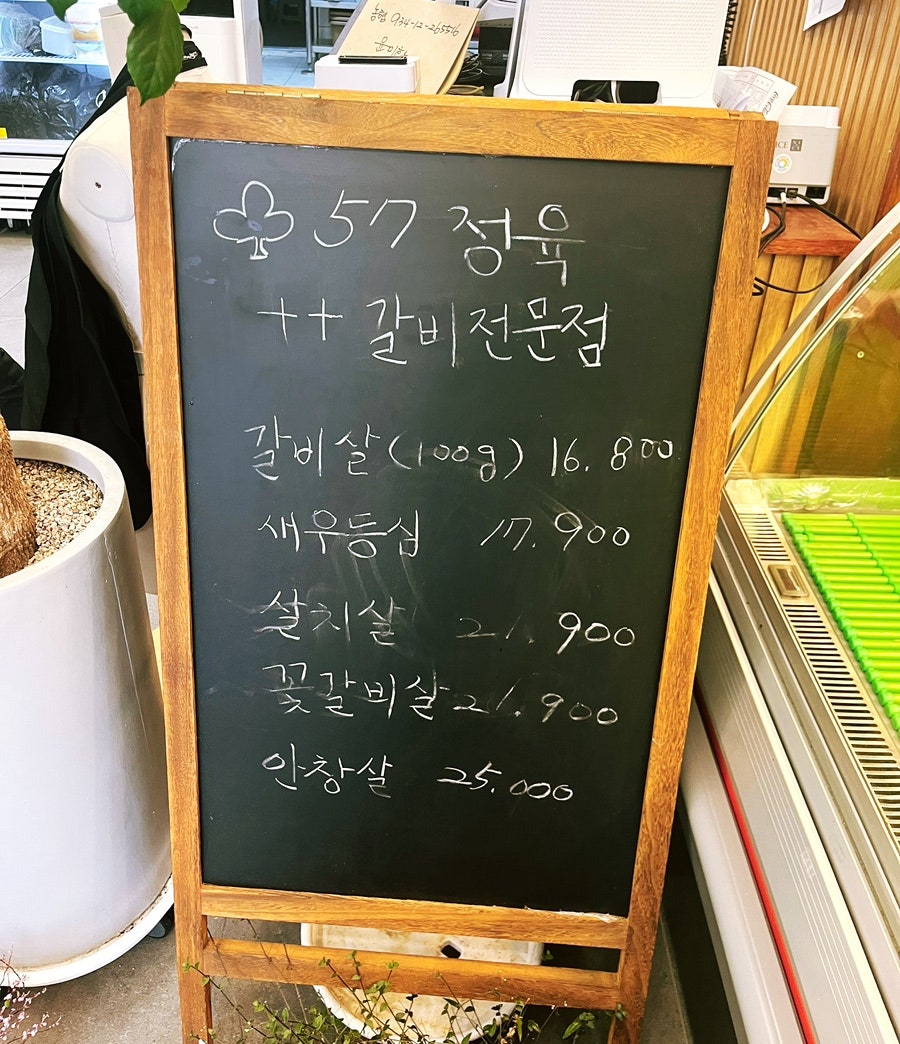 농협 034-12-265516
57 정육
++ 갈비전문점
갈비살(100g) 16.800
새우등심 17.900
살치살 21.900
꽃갈비살 21.900
안창살 25.000